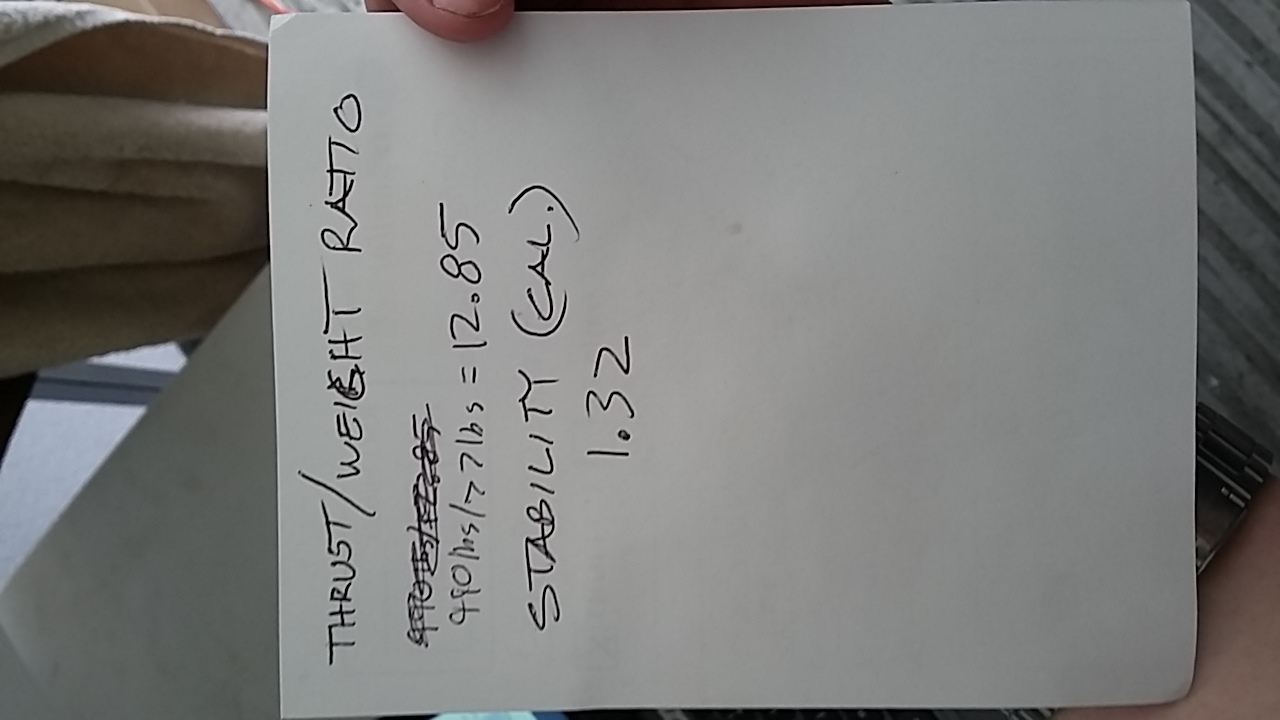 THRUST/WEIGHT RATIO
990lbs/77lbs = 12.85
STABILITY (CAL.)
1.32